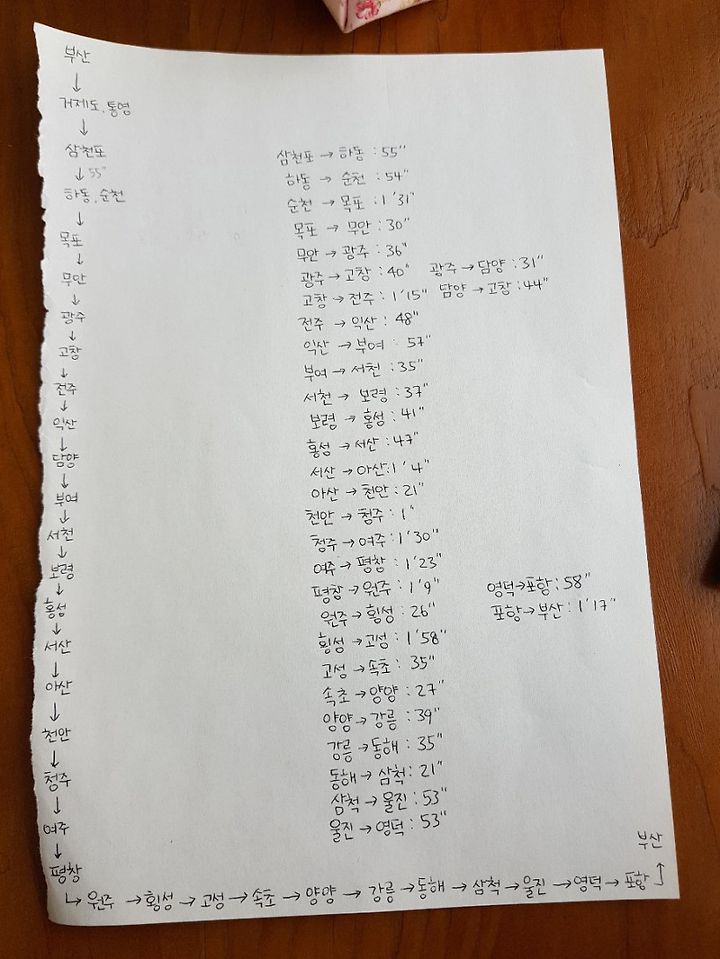 부산
↓
거제도, 통영
↓
삼천포
↓ 55"
하동, 순천
↓
목포
↓
무안
↓
광주
↓
고창
↓
전주
↓
익산
↓
담양
↓
부여
↓
서천
↓
보령
↓
홍성
↓
서산
↓
아산
↓
천안
↓
청주
↓
여주
↓
평창
↳ 원주 → 횡성 → 고성 → 속초 → 양양 → 강릉 → 동해 → 삼척 → 울진 → 영덕 → 포항
↑
부산
삼천포 → 하동 : 55"
하동 → 순천 : 54"
순천 → 목포 : 1'31"
목포 → 무안 : 30"
무안 → 광주 : 36"
광주 → 고창 : 40" 광주 → 담양 : 31"
고창 → 전주 : 1'15" 담양 → 고창 : 44"
전주 → 익산 : 48"
익산 → 부여 : 57"
부여 → 서천 : 35"
서천 → 보령 : 37"
보령 → 홍성 : 41"
홍성 → 서산 : 47"
서산 → 아산 : 1'4"
아산 → 천안 : 21"
천안 → 청주 : 1"
청주 → 여주 : 1'30"
여주 → 평창 : 1'23"
평창 → 원주 : 1'9"
원주 → 횡성 : 26"
횡성 → 고성 : 1'58"
고성 → 속초 : 35"
속초 → 양양 : 27"
양양 → 강릉 : 39"
강릉 → 동해 : 35"
동해 → 삼척 : 21"
삼척 → 울진 : 53"
울진 → 영덕 : 53"
영덕 → 포항 : 58"
포항 → 부산 : 1'17"